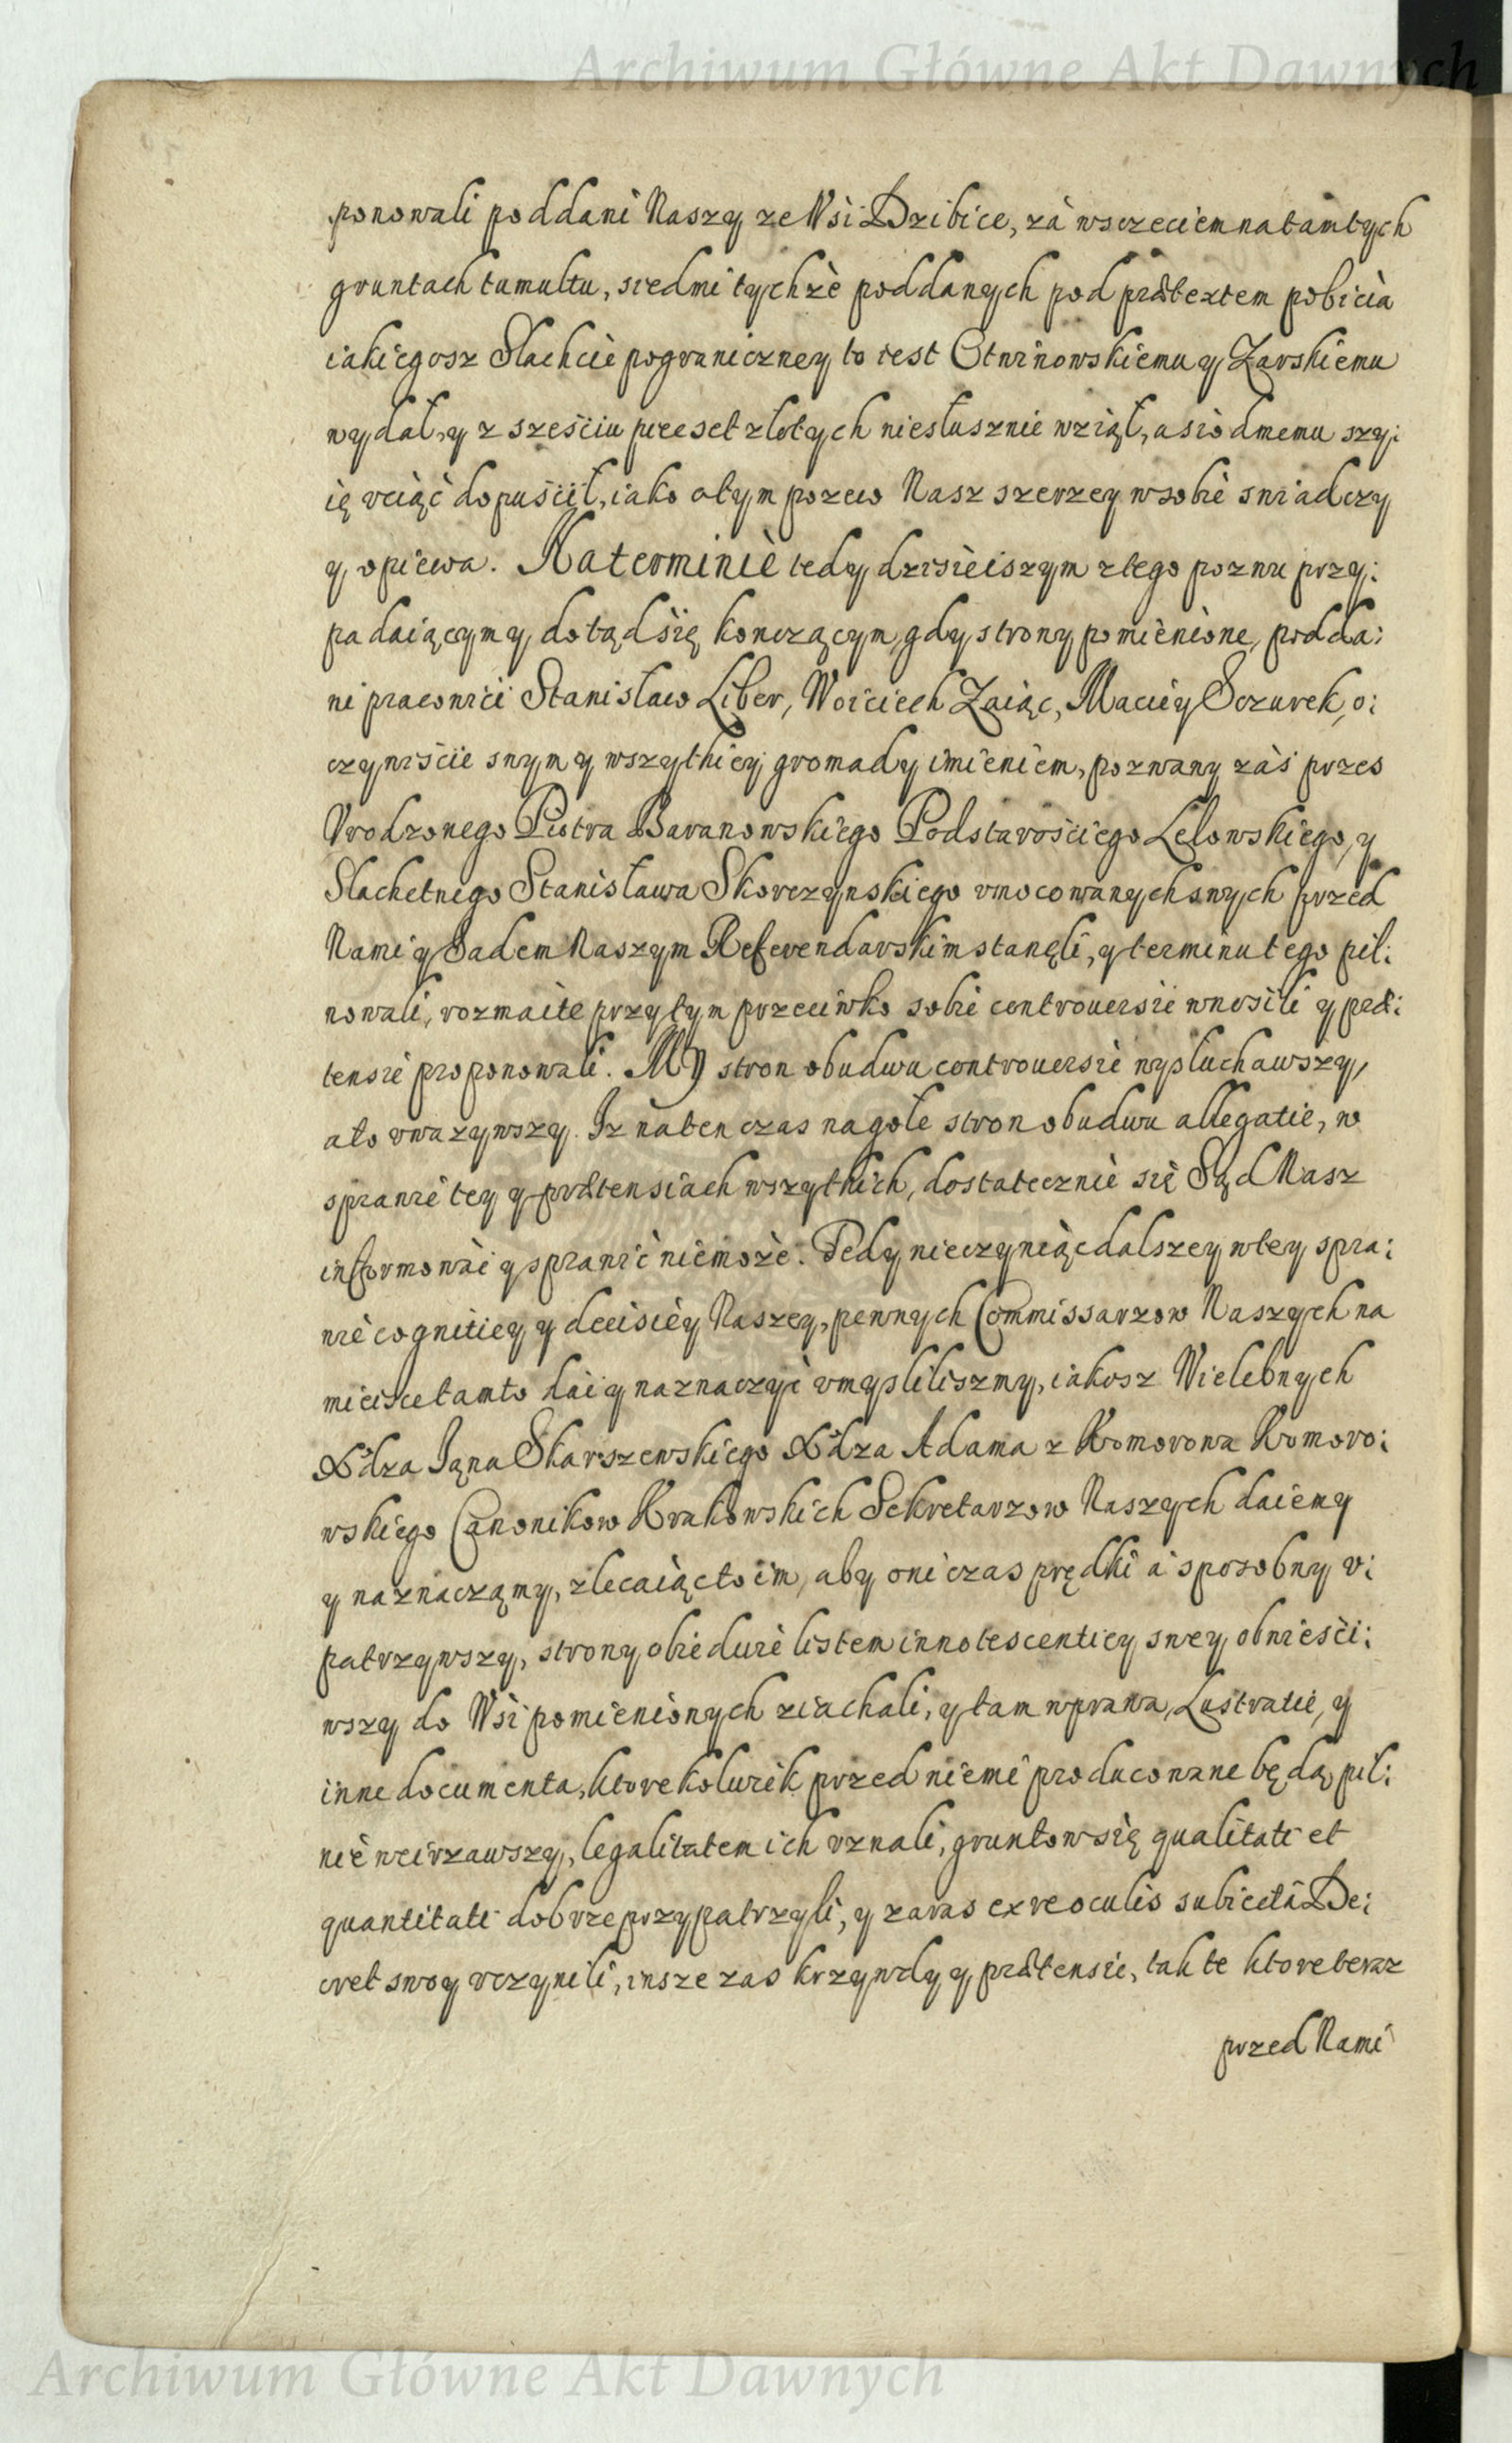 Archiwum Główne Akt Dawnych
ponowali poddani Naszy ze Wsi Dzibice, zà wsczeciem na tamtych
gruntach tumultu, siedmi tychże poddanych pod prætextem pobicia
iakiegosz Slachcie pograniczney to iest Otwinowskiemu y Zarskiemu
wydał, y z sześciu pięcset złotych niesłusznie wziął, a siodmemu szy:
ię vciąć dopuścił, iako o tym pozew Nasz szerzey w sobie swiadczy
y opiewa. Na terminie tedy dzisieiszym z tego pozwu przy:
padaiącym y dotąd się konczącym, gdy strony pomienione, podda:
ni pracowici Stanisław Liber, Woiciech Zaiąc, Maciey Sczurek, o:
czywiście swym y wszytkiey gromady imieniem, pozwany zaś przes
Vrodzonego Piotra Baranowskiego Podstarościego Lelowskiego, y
Slachetnego Stanisława Skorczynskiego vmocowanych swych przed
Nami y Sądem Naszym Referendarskim stanęli, y terminu tego pil:
nowali, rozmaite przytym przeciwko sobie controuersie wnosili y præ:
tensie proponowali. MY stron obudwu controuersie wysłuchawszy,
a to vwazywszy. Iz na ten czas na gołe stron obudwu allegatie, w
sprawie tey y prætensiach wszytkich, dostatecznie się Sąd Nasz
informować y sprawić niemoże. Tedy nie czyniąc dalszey w tey spra:
wie cognitiey y decisiey Naszey, pewnych Commissarzow Naszych na
mieisce tamto dać y naznaczyć vmyslilismy, iakosz Wielebnych
Xdza Iana Skarszewskiego Xdza Adama z Komorowa Komoro:
wskiego Canonikow Krakowskich Sekretarzow Naszych daiemy
y naznaczamy, zlecaiąc to im, aby oni czas prędki a sposobny v:
patrzywszy, strony obiedwie listem innotescentiey swey obwieści:
wszy do Wsi pomienionych ziachali, y tam w prawa, Lustratie, y
inne documenta, ktorekolwiek przed niemi producowane będą, pil:
nie weirzawszy, legalitatem ich vznali, gruntow się qualitati et
quantitati dobrze przypatrzyli, y zaras ex re oculis subiecta De:
cret swoy vczynili, insze zas krzywdy y prætensie, tak te ktore teraz
przed Nami
Archiwum Główne Akt Dawnych